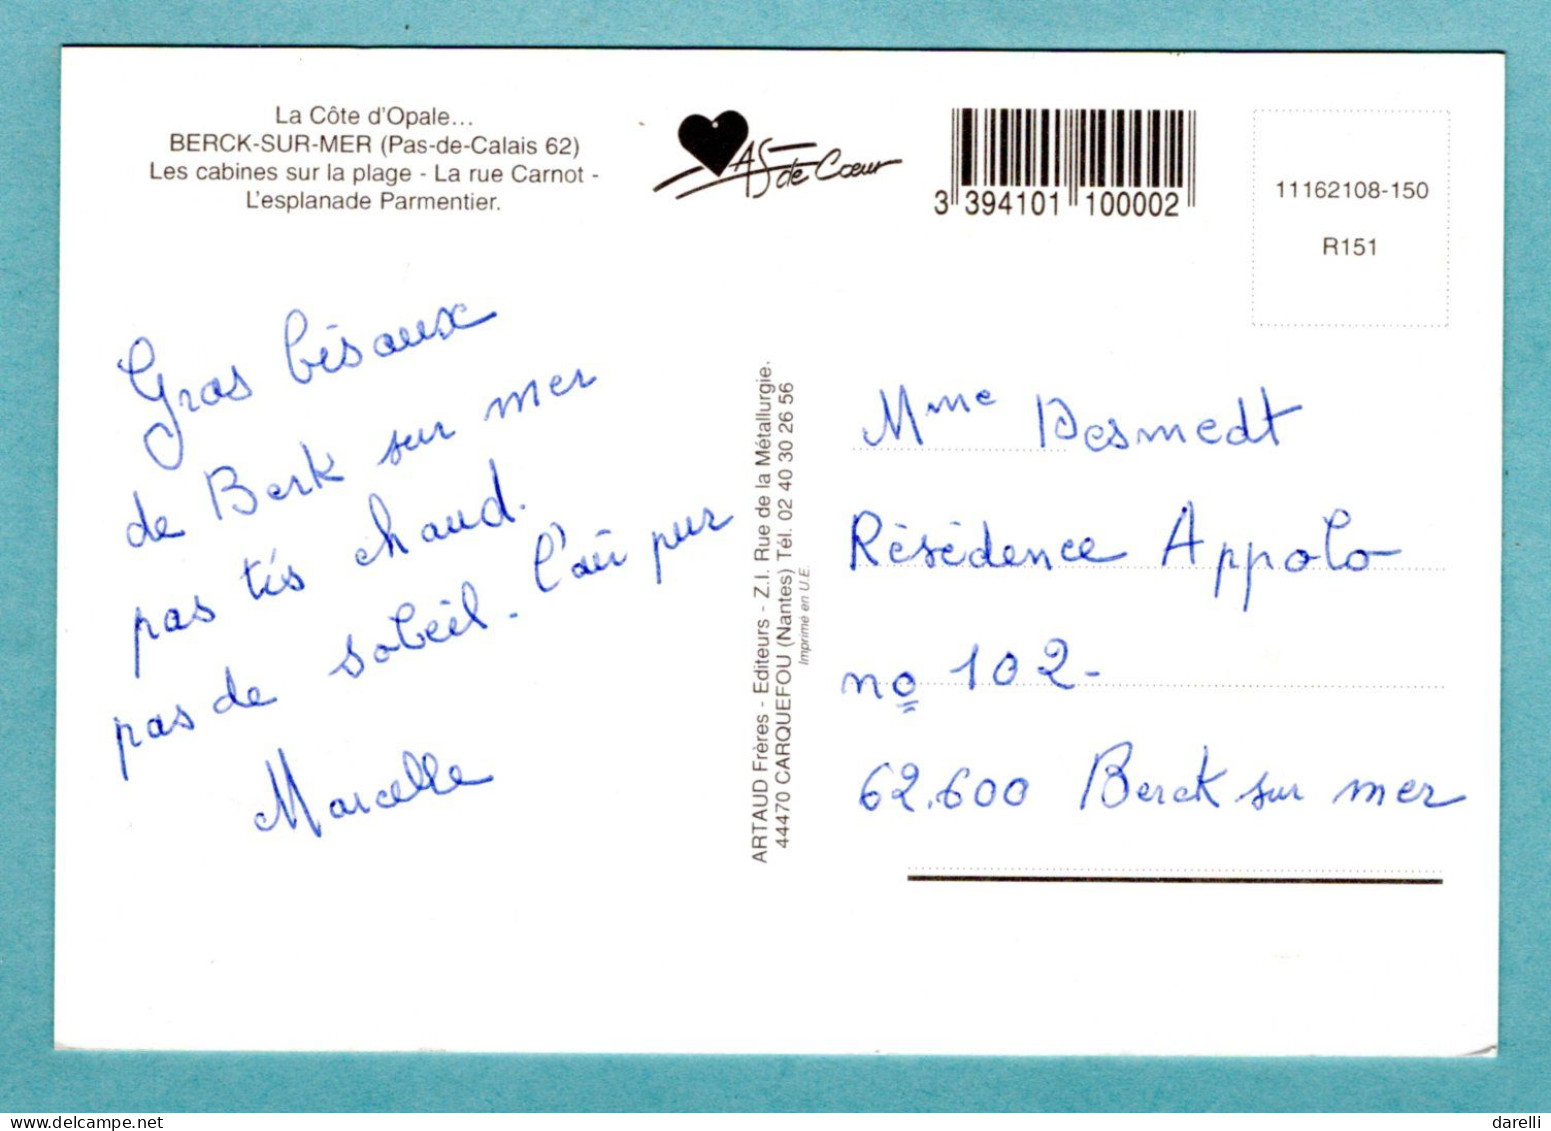 La Côte d'Opale...
BERCK-SUR-MER (Pas-de-Calais 62)
Les cabines sur la plage - La rue Carnot -
L'esplanade Parmentier.
AS de Cœur
3 394101 100002
11162108-150
R151
Gros bésaux
de Berk sur mer
pas tés chaud.
pas de soleil - l'air pur
Marcelle
ARTAUD Frères - Editeurs - Z.I. Rue de la Métallurgie.
44470 CARQUEFOU (Nantes) Tél. 02 40 30 26 56
Imprimé en U.E.
Mme Desmedt
Résédence Appolo
no 102-
62.600 Berck sur mer
www.delcampe.net
darelli